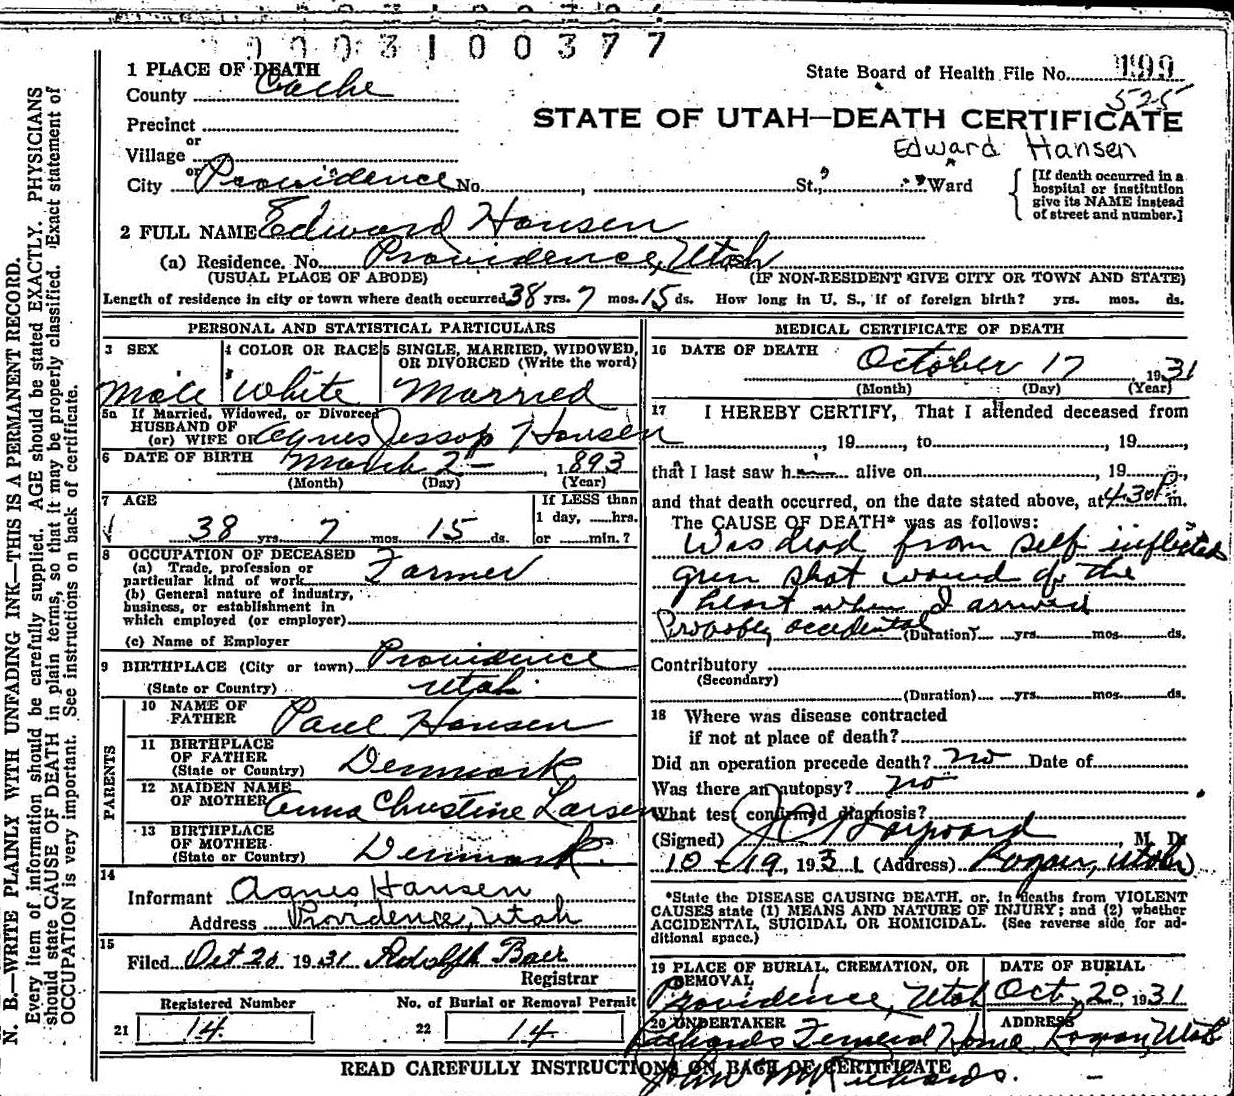 0003100377
1 PLACE OF DEATH
State Board of Health File No. 199
County Cache
525
STATE OF UTAH—DEATH CERTIFICATE
Precinct
Edward Hansen
or
Village
or
City Providence No. , St., Ward
[If death occurred in a
hospital or institution
give its NAME instead
of street and number.]
2 FULL NAME Edward Hansen
(a) Residence, No. Providence, Utah
(USUAL PLACE OF ABODE) (IF NON-RESIDENT GIVE CITY OR TOWN AND STATE)
Length of residence in city or town where death occurred 38 yrs. 7 mos. 15 ds. How long in U. S., if of foreign birth? yrs. mos. ds.
PERSONAL AND STATISTICAL PARTICULARS
3 SEX
Male
4 COLOR OR RACE
White
5 SINGLE, MARRIED, WIDOWED,
OR DIVORCED (Write the word)
Married
5a If Married, Widowed, or Divorced
HUSBAND OF
(or) WIFE OF Agnes Jessop Hansen
6 DATE OF BIRTH March 2 — , 1893
(Month) (Day) (Year)
7 AGE
38 yrs. 7 mos. 15 ds.
If LESS than
1 day, hrs.
or min.?
8 OCCUPATION OF DECEASED
(a) Trade, profession or
particular kind of work Farmer
(b) General nature of industry,
business, or establishment in
which employed (or employer)
(c) Name of Employer
9 BIRTHPLACE (City or town) Providence
(State or Country) Utah
PARENTS
10 NAME OF
FATHER Paul Hansen
11 BIRTHPLACE
OF FATHER
(State or Country) Denmark
12 MAIDEN NAME
OF MOTHER Anna Christine Larsen
13 BIRTHPLACE
OF MOTHER
(State or Country) Denmark.
14
Informant Agnes Hansen
Address Providence, Utah
15
Filed Oct 20 1931 Rodolfh Baer
Registrar
Registered Number
21 14
No. of Burial or Removal Permit
22 14
MEDICAL CERTIFICATE OF DEATH
16 DATE OF DEATH October 17 1931
(Month) (Day) (Year)
17 I HEREBY CERTIFY, That I attended deceased from
, 19 , to , 19 ,
that I last saw h alive on , 19 ,
and that death occurred, on the date stated above, at 4:30 P. m.
The CAUSE OF DEATH* was as follows:
Was dead from self inflicted
gun shot wound of the
heart when I arrived
Probably accidental (Duration) yrs. mos. ds.
Contributory
(Secondary)
(Duration) yrs. mos. ds.
18 Where was disease contracted
if not at place of death?
Did an operation precede death? no Date of
Was there an autopsy? no
What test confirmed diagnosis?
(Signed) J C Hayward M. D.
10 - 19, 1931 (Address) Logan, Utah
*State the DISEASE CAUSING DEATH, or, in deaths from VIOLENT
CAUSES state (1) MEANS AND NATURE OF INJURY; and (2) whether
ACCIDENTAL, SUICIDAL OR HOMICIDAL. (See reverse side for ad-
ditional space.)
19 PLACE OF BURIAL, CREMATION, OR
REMOVAL
Providence, Utah
DATE OF BURIAL
Oct. 20, 1931
20 UNDERTAKER
Richards Funeral Home
ADDRESS
Logan, Utah
READ CAREFULLY INSTRUCTIONS ON BACK OF CERTIFICATE
John M. Richards.
N. B.—WRITE PLAINLY WITH UNFADING INK—THIS IS A PERMANENT RECORD.
Every item of information should be carefully supplied. AGE should be stated EXACTLY. PHYSICIANS
should state CAUSE OF DEATH in plain terms, so that it may be properly classified. Exact statement of
OCCUPATION is very important. See instructions on back of certificate.